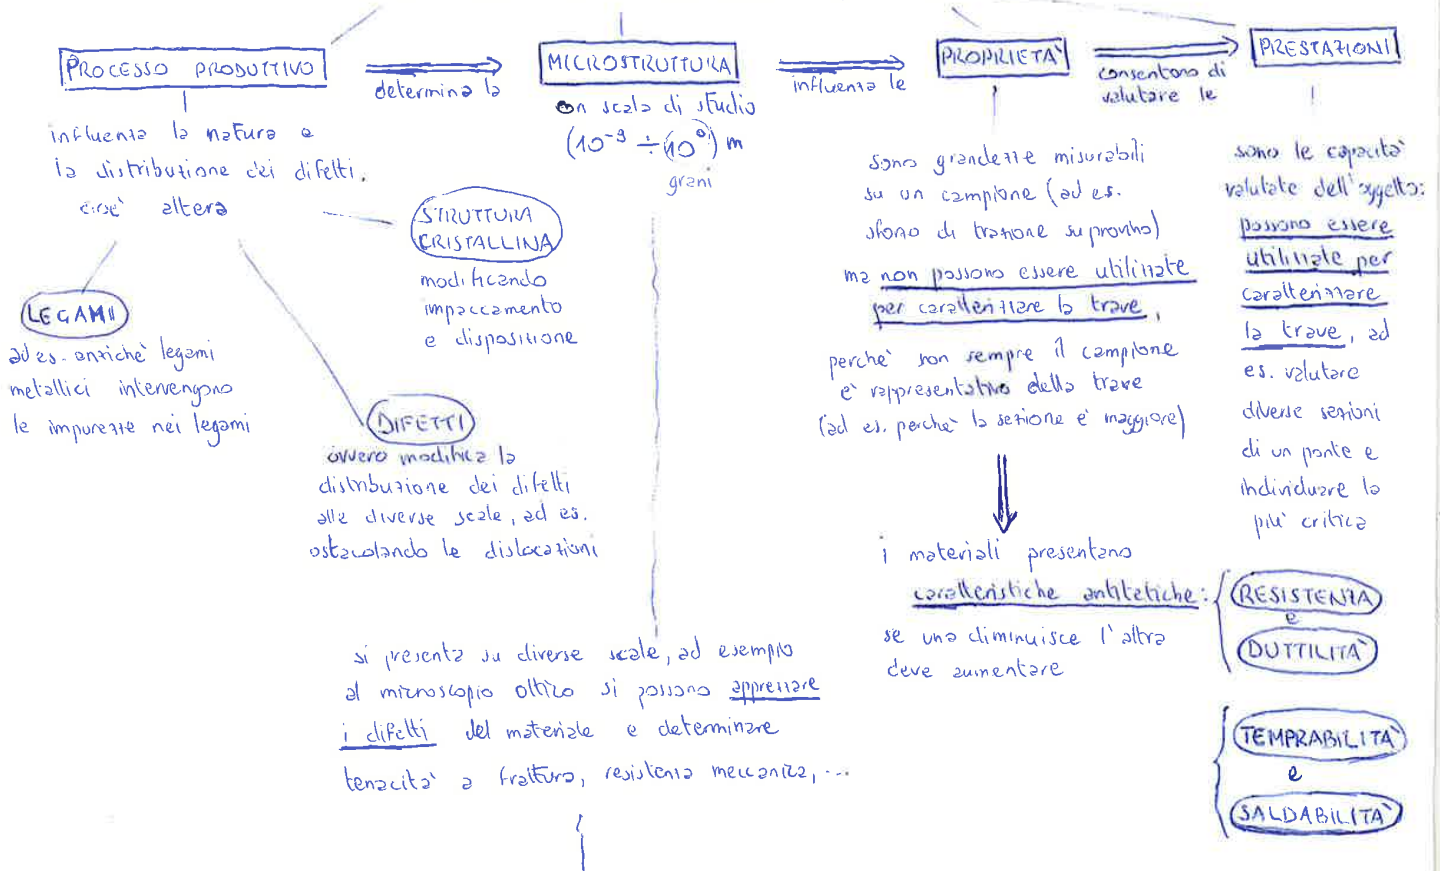 PROCESSO PRODUTTIVO
determina la
MICROSTRUTTURA
influenza le
PROPRIETÀ
consentono di
valutare le
PRESTAZIONI
influenza la natura e
la distribuzione dei difetti,
cioè altera
LEGAMI
ad es. anziché legami
metallici intervengono
le impurezze nei legami
STRUTTURA
CRISTALLINA
modificando
impaccamento
e disposizione
DIFETTI
ovvero modifica la
distribuzione dei difetti
alle diverse scale, ad es.
ostacolando le dislocazioni
on scala di studio
(10⁻⁹ ÷ (10⁰) m
grani
si presenta su diverse scale, ad esempio
al microscopio ottico si possono apprezzare
i difetti del materiale e determinare
tenacità a frattura, resistenza meccanica, ...
sono grandezze misurabili
su un campione (ad es.
sforzo di trazione su provino)
ma non possono essere utilizzate
per caratterizzare la trave,
perchè non sempre il campione
è rappresentativo della trave
(ad es. perchè la sezione è maggiore)
i materiali presentano
caratteristiche antitetiche:
se una diminuisce l'altra
deve aumentare
RESISTENZA
e
DUTTILITÀ
TEMPRABILITÀ
e
SALDABILITÀ
sono le capacità
valutate dell'oggetto:
possono essere
utilizzate per
caratterizzare
la trave, ad
es. valutare
diverse sezioni
di un ponte e
individuare la
più critica